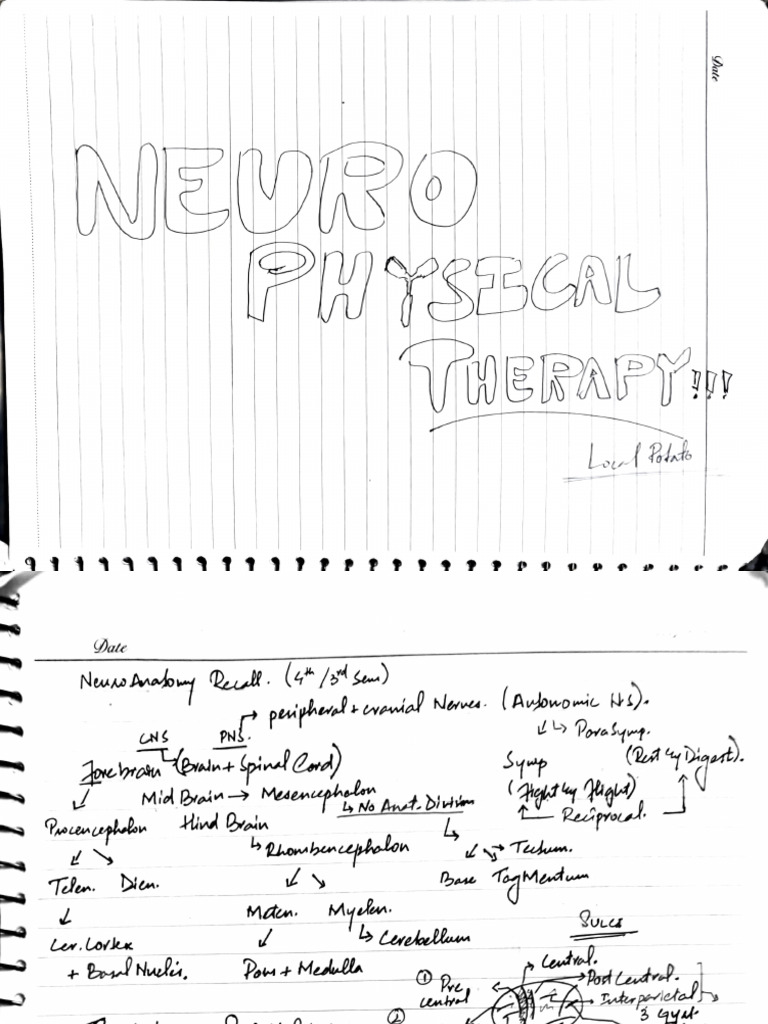 Date
NEURO
PHYSICAL
THERAPY!!!
Local Potato
Date
NeuroAnatomy Recall. (4th/3rd Sem)
peripheral + cranial Nerves. (Autonomic NS).
CNS PNS. ParaSymp.
Forebrain (Brain + Spinal Cord) Symp (Rest & Digest).
Mid Brain → Mesencephalon (Fight & Flight)
Procencephalon Hind Brain No Anat. Division Reciprocal.
Rhombencephalon → Tectum.
Telen. Dien. Base TagMentum
Meten. Myelen. SULCI
Cer. Cortex Cerebellum
+ Basal Nuclei. Pons + Medulla Central.
① Pre central Post Central.
Interparietal
② 3 gyri